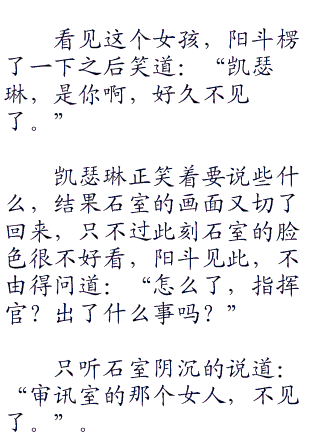 看见这个女孩，阳斗楞
了一下之后笑道：“凯瑟
琳，是你啊，好久不见
了。”
凯瑟琳正笑着要说些什
么，结果石室的画面又切了
回来，只不过此刻石室的脸
色很不好看，阳斗见此，不
由得问道：“怎么了，指挥
官？出了什么事吗？”
只听石室阴沉的说道：
“审讯室的那个女人，不见
了。”。